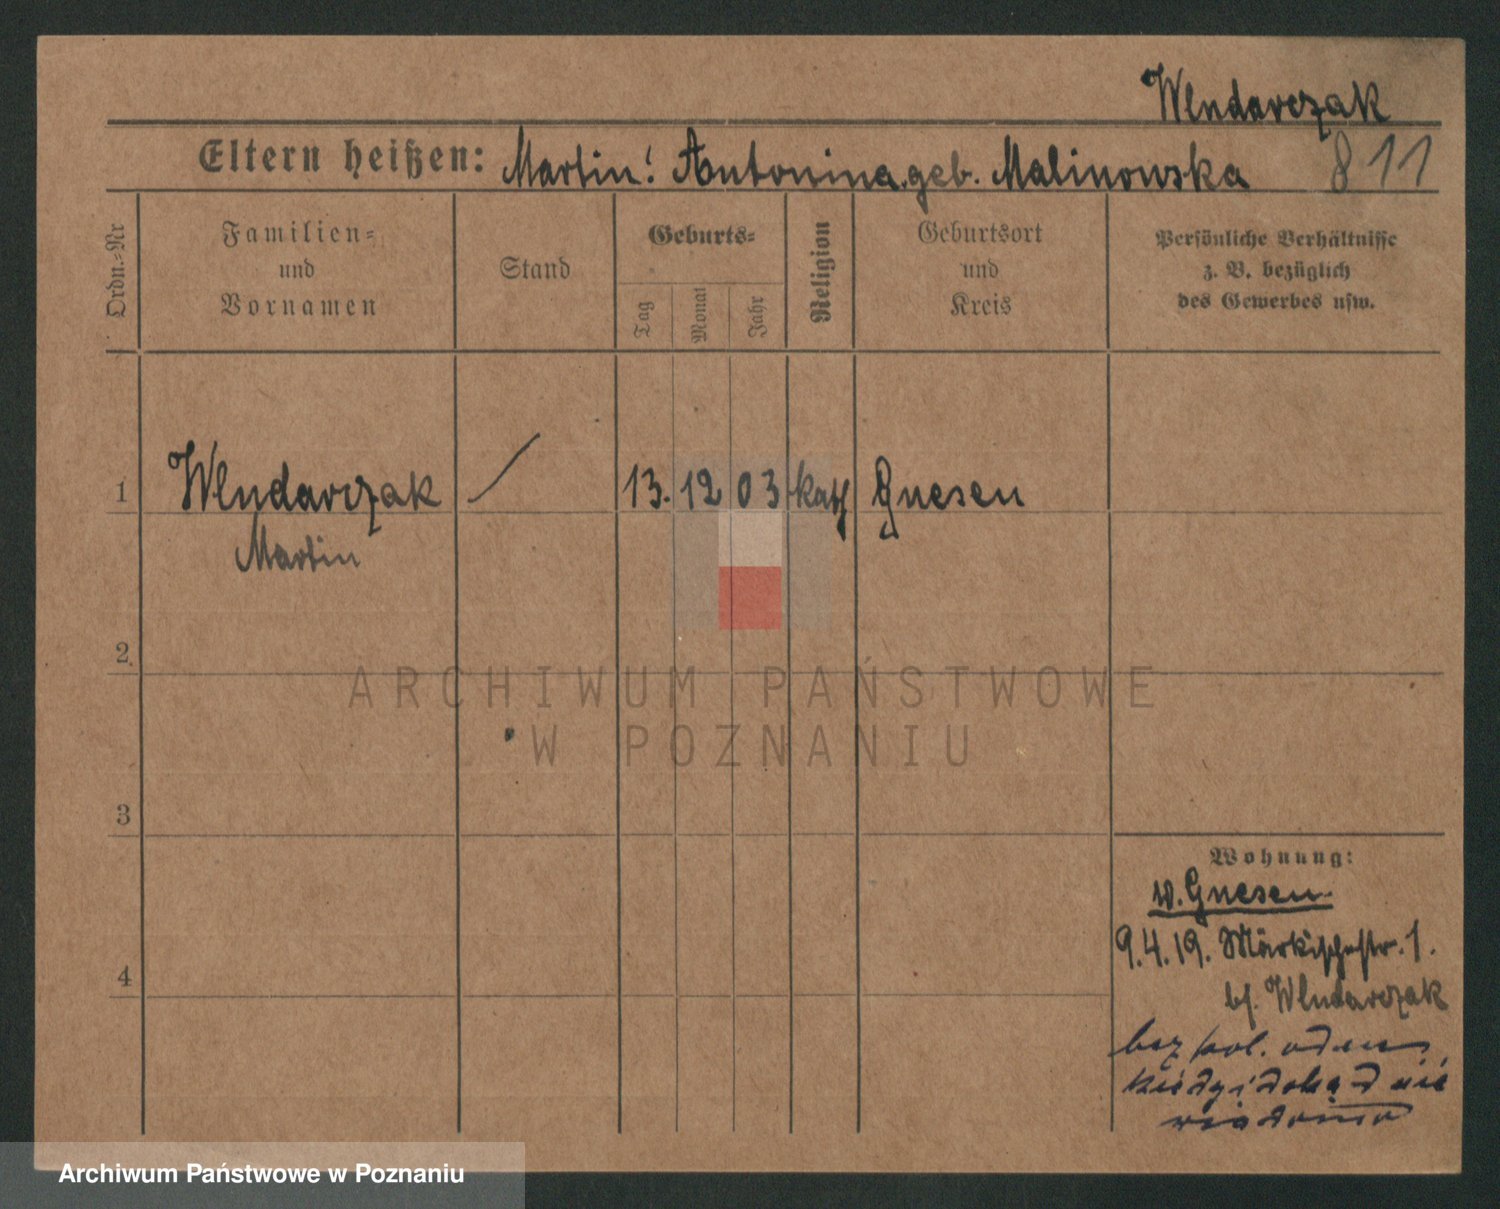 Wlndarczak
Eltern heißen: Martin! Antonina geb. Malinowska 811
Ordn.-Nr
Familien-
und
Vornamen
Stand
Geburts-
Tag
Monat
Jahr
Religion
Geburtsort
und
Kreis
Persönliche Verhältnisse
z. B. bezüglich
des Gewerbes usw.
1 Wlndarczak 13. 12 03 kath Gnesen
Martin
2
3
4
Wohnung:
w. Gnesen
9.4.19. Märkischestr. 1.
bf. Wlndarczak
bez pol. odem
kiedy i dokąd nie
wiadomo
ARCHIWUM PAŃSTWOWE
W POZNANIU
Archiwum Państwowe w Poznaniu